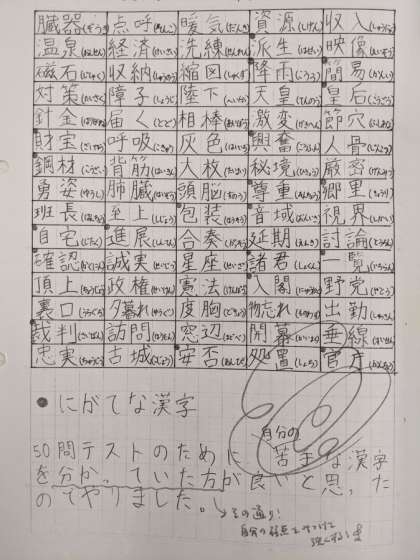 臓器(ぞうき) 点呼(てんこ) 暖気(だんき) 資源(しげん) 収入(しゅうにゅう)
温泉(おんせん) 経済(けいざい) 洗練(せんれん) 派生(はせい) 映像(えいぞう)
磁石(じしゃく) 収納(しゅうのう) 縮図(しゅくず) 降雨(こうう) 簡易(かんい)
対策(たいさく) 障子(しょうじ) 陛下(へいか) 天皇(てんのう) 皇后(こうごう)
針金(はりがね) 届く(とどく) 相棒(あいぼう) 激変(げきへん) 節穴(ふしあな)
財宝(ざいほう) 呼吸(こきゅう) 灰色(はいいろ) 興奮(こうふん) 人骨(じんこつ)
鋼材(こうざい) 背筋(はいきん) 大枚(たいまい) 秘境(ひきょう) 厳密(げんみつ)
勇姿(ゆうし) 肺臓(はいぞう) 頭脳(ずのう) 尊重(そんちょう) 郷里(きょうり)
班長(はんちょう) 至上(しじょう) 包装(ほうそう) 音域(おんいき) 視界(しかい)
自宅(じたく) 進展(しんてん) 合奏(がっそう) 延期(えんき) 討論(とうろん)
確認(かくにん) 誠実(せいじつ) 星座(せいざ) 諸君(しょくん) 一覧(いちらん)
頂上(ちょうじょう) 政権(せいけん) 憲法(けんぽう) 入閣(にゅうかく) 野党(やとう)
裏口(うらぐち) 夕暮れ(ゆうぐれ) 度胸(どきょう) 物忘れ(ものわすれ) 出勤(しゅっきん)
裁判(さいばん) 訪問(ほうもん) 窓辺(まどべ) 開幕(かいまく) 垂線(すいせん)
忠実(ちゅうじつ) 古城(こじょう) 安否(あんぴ) 処置(しょち) 官庁(かんちょう)
●にがてな漢字
自分の
50問テストのために、苦手な漢字
を分かっていた方が良いと思った
のでやりました。
その通り!
自分の弱点を見つけて
強くする!